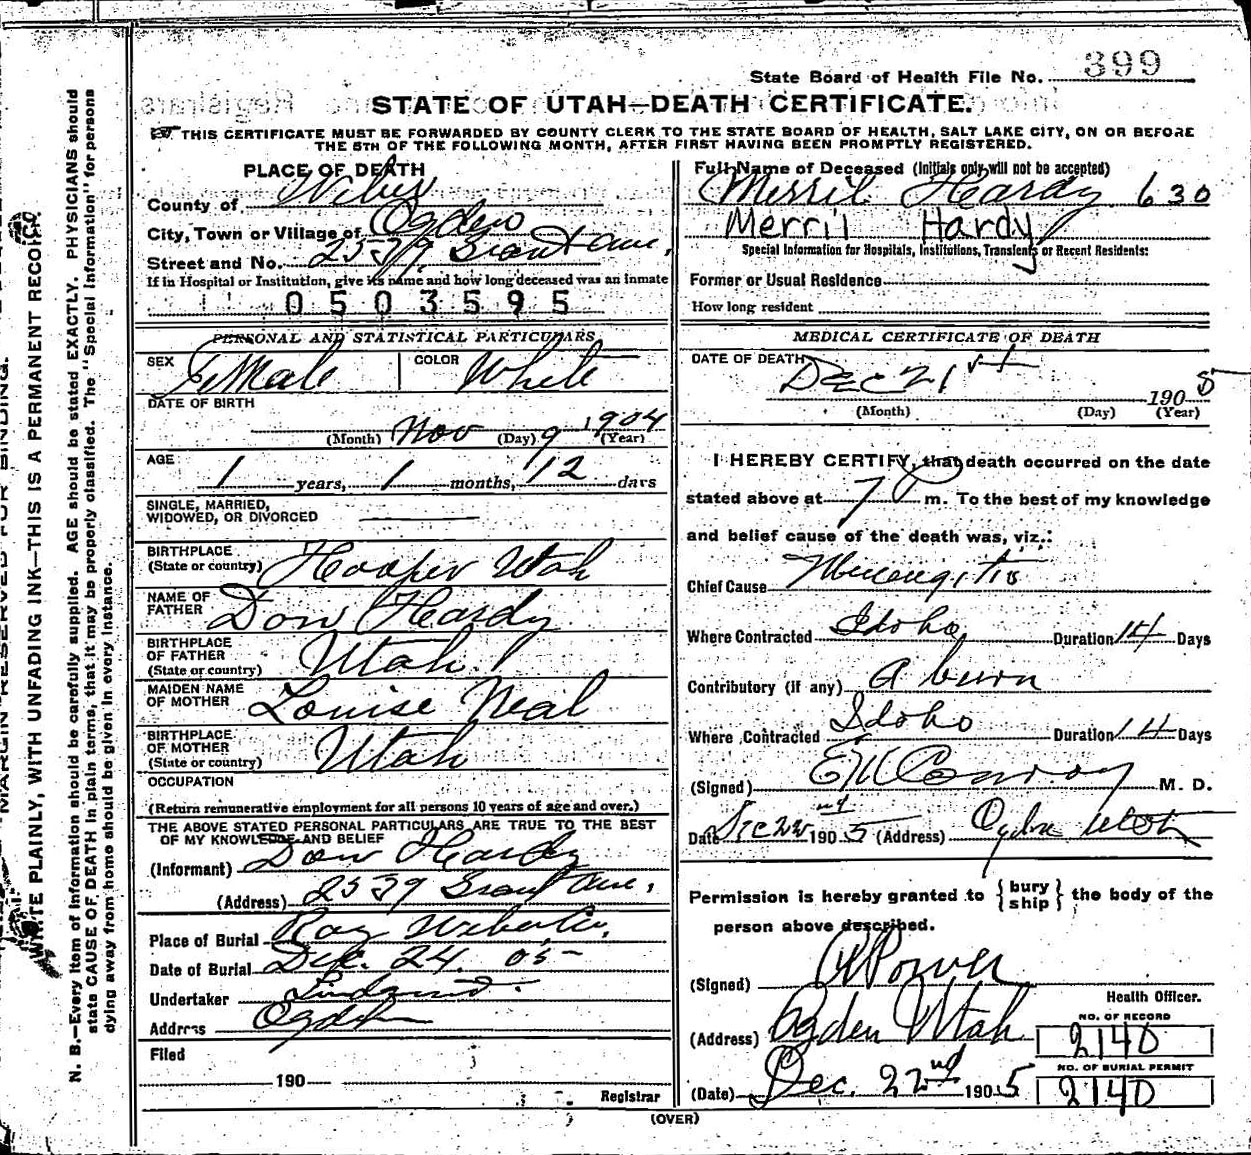 State Board of Health File No. 399
STATE OF UTAH—DEATH CERTIFICATE.
THIS CERTIFICATE MUST BE FORWARDED BY COUNTY CLERK TO THE STATE BOARD OF HEALTH, SALT LAKE CITY, ON OR BEFORE
THE 5TH OF THE FOLLOWING MONTH, AFTER FIRST HAVING BEEN PROMPTLY REGISTERED.
PLACE OF DEATH
County of Weber
City, Town or Village of Ogden
Street and No. 2539 Grant Ave.
If in Hospital or Institution, give its name and how long deceased was an inmate
0503595
PERSONAL AND STATISTICAL PARTICULARS
SEX FeMale COLOR White
DATE OF BIRTH
(Month) Nov (Day) 9 1904 (Year)
AGE 1 years, 1 months, 12 days
SINGLE, MARRIED,
WIDOWED, OR DIVORCED
BIRTHPLACE
(State or country) Hooper Utah
NAME OF
FATHER Don Hardy
BIRTHPLACE
OF FATHER
(State or country) Utah
MAIDEN NAME
OF MOTHER Louise Neal
BIRTHPLACE
OF MOTHER
(State or country) Utah
OCCUPATION
(Return remunerative employment for all persons 10 years of age and over.)
THE ABOVE STATED PERSONAL PARTICULARS ARE TRUE TO THE BEST
OF MY KNOWLEDGE AND BELIEF
(Informant) Don Hardy
(Address) 2539 Grant Ave,
Place of Burial Roy Weber Co,
Date of Burial Dec. 24 05
Undertaker
Address Ogden
Filed
190
Registrar
(OVER)
Full Name of Deceased (Initials only will not be accepted)
Merril Hardy 630
Merril Hardy
Special Information for Hospitals, Institutions, Transients or Recent Residents:
Former or Usual Residence
How long resident
MEDICAL CERTIFICATE OF DEATH
DATE OF DEATH
Dec 21st 1905
(Month) (Day) (Year)
I HEREBY CERTIFY, that death occurred on the date
stated above at 7 P m. To the best of my knowledge
and belief cause of the death was, viz.:
Chief Cause Meningitis
Where Contracted Idoho Duration 14 Days
Contributory (if any) A burn
Where Contracted Idoho Duration 14 Days
(Signed) E M Conroy M. D.
Date Dec 22nd 1905 (Address) Ogden Utah
Permission is hereby granted to { bury ship } the body of the
person above described.
(Signed) Power
Health Officer.
(Address) Ogden Utah
NO. OF RECORD
2140
(Date) Dec. 22nd 1905
NO. OF BURIAL PERMIT
2140
MARGIN RESERVED FOR BINDING.
WRITE PLAINLY, WITH UNFADING INK—THIS IS A PERMANENT RECORD.
N. B.—Every item of information should be carefully supplied. AGE should be stated EXACTLY. PHYSICIANS should
state CAUSE OF DEATH in plain terms, that it may be properly classified. The "Special Information" for persons
dying away from home should be given in every instance.